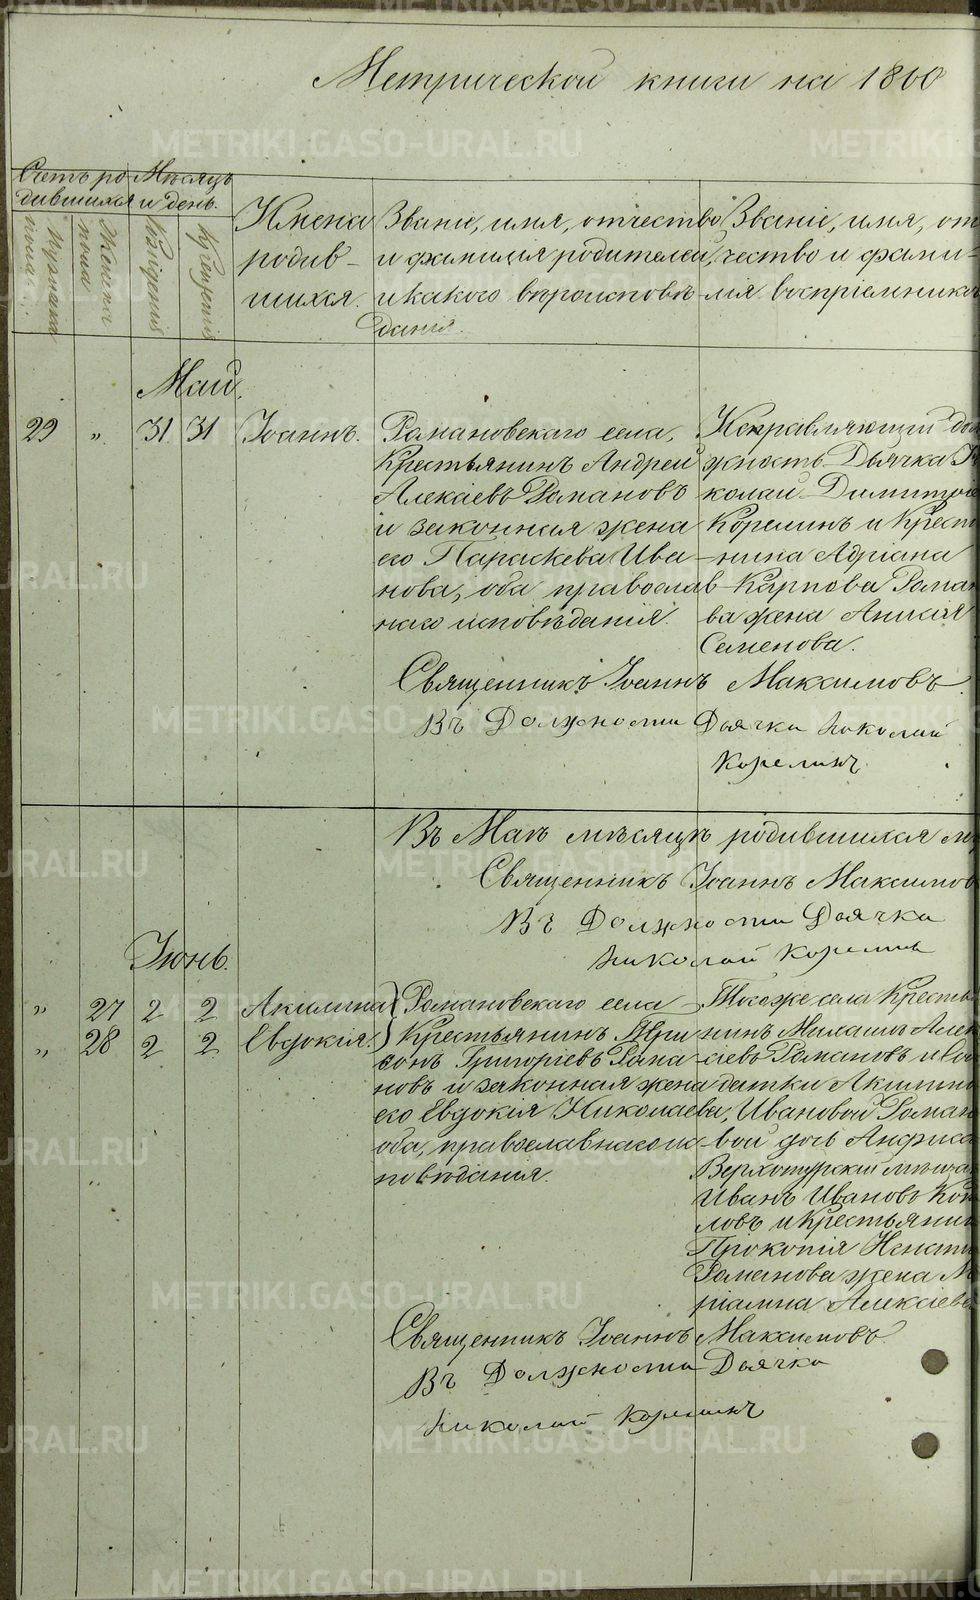 Метрической книги на 1860
Счетъ ро
дившихся
Мѣсяцъ
и день.
Мужеска
пола.
Женска
пола
Рожденія
Крещенія
Имена
родив-
шихся.
Званіе, имя, отчество
и фамилія родителей,
и какого вѣроисповѣ-
данія.
Званіе, имя, от
чество и фами-
лія воспріемников
Май.
29 „ 31 31 Іоаннъ.
Романовскаго села,
Крестьянинъ Андрей
Алексіевъ Романовъ
и законная жена
его Параскева Ива-
нова, оба православ-
наго исповѣданія.
Исправляющій дол
жность Дьячка Ни
колай Димитрiе
Корелинъ и Крест
нина Адріана
Карпова Роман
ва жена Анисія
Семенова.
Священникъ Іоаннъ Максимовъ.
Въ Должности Дьячка Николай
Корелинъ
Въ Маѣ мѣсяцѣ родившихся м
Священникъ Іоаннъ Максимов
Въ Должности Дьячка
Николай Корелинъ
Іюнь.
„ 27 2 2 Акилина
„ 28 2 2 Евдокія.
Романовскаго села
Крестьянинъ
сонъ Григоріевъ Рома-
новъ и законная жена
его Евдокія Николаева,
оба, православнаго ис-
повѣданія.
Того же села Кресть
нинъ Алек
сіевъ Романовъ и
датки Акилин
Ивановой Роман
вой дочь Анфиса
Верхотурскій мѣща
Иванъ Ивановъ Коп
ловъ и Крестьянин
Прокопія
Романова жена М
ріамна Алексіев
Священникъ Іоаннъ Максимовъ
Въ Должности Дьячка
Николай Корелинъ
METRIKI.GASO-URAL.RU